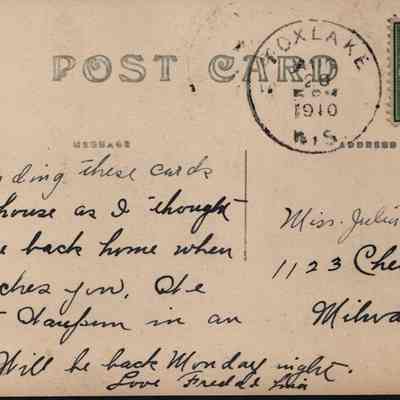 POST CARD
TOXLAKE
28
1910
WIS
MESSAGE
ADDRESS
ding these cards
house as I thought
back home when
ches you. We
in an
Will be back Monday night.
Love Fred &
Miss. Julia
1123 Che
Milwa